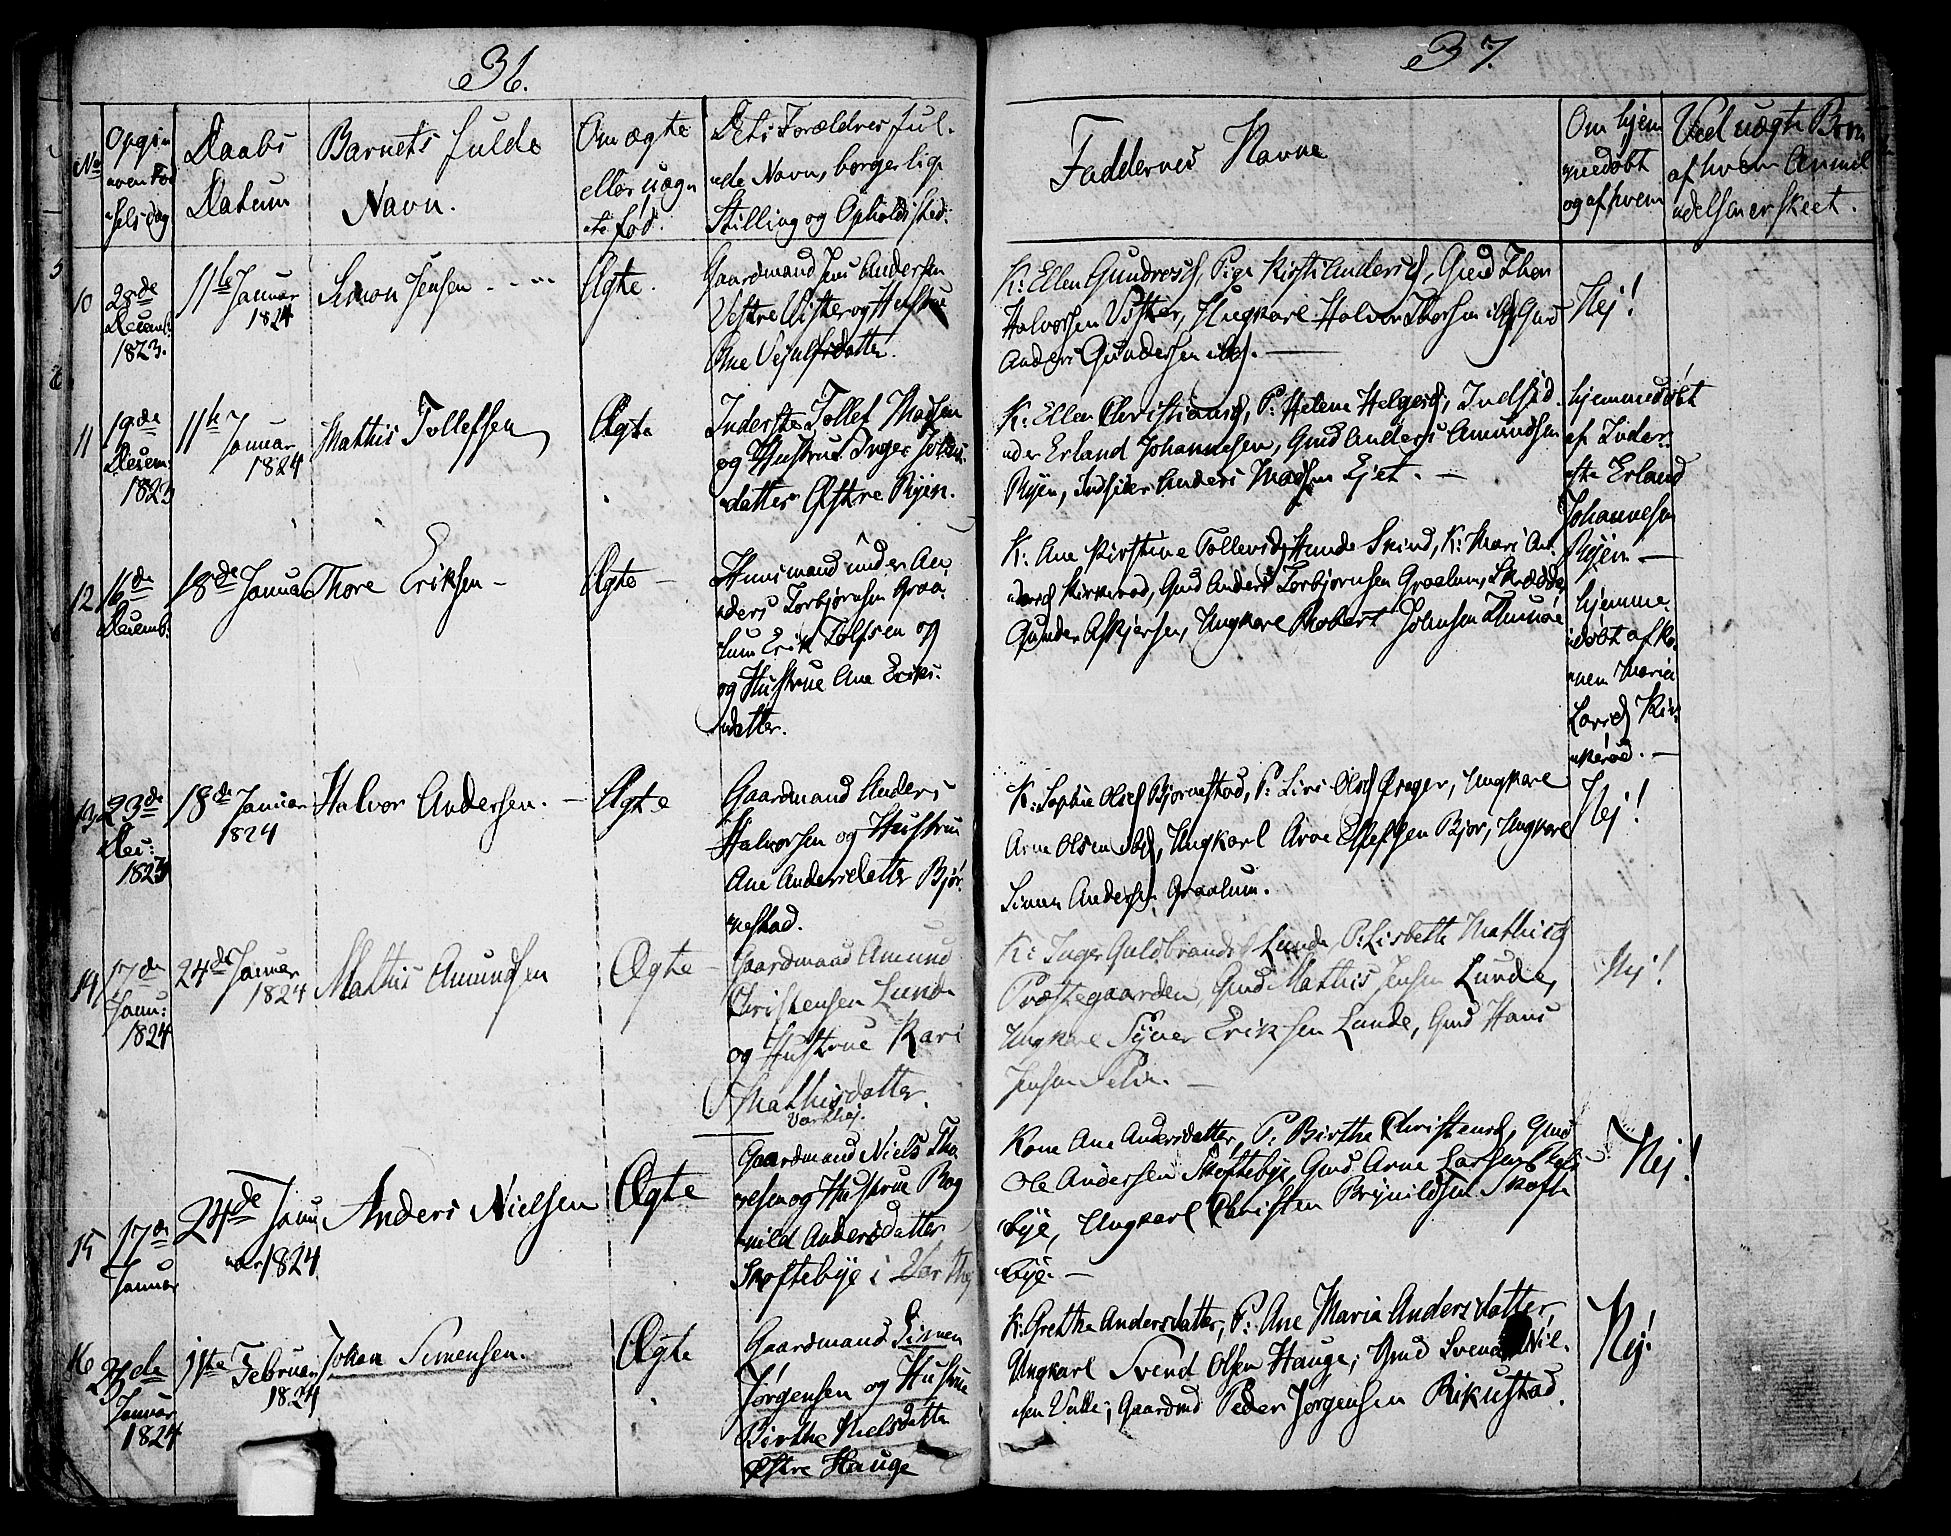 36.
No
Opgi
Daabs
Datum
Barnets fulde
Navn.
Om ægte
eller uægn
te fød.
Dets Forældres ful-
de Navn, borgerlige
Stilling og Opholdssted.
10
28de
Decemb:
1823.
11te Januar
1824
Simon Jensen
Ægte.
Gaardmand Jens Andersen
Vestre Vister og Hustrue
Ane
11
19de
Decem:
1823
11te Januar
1824
Mathis Tollefsen
Ægte
Inderste Tollef Madsen
og Hustrue Inger Johan
datter Østre Ryen.
12
16de
Decemb:
18de Januar
Thore Eriksen
Ægte
Huusmand under An
ders Torbjørnsen Graa
lum Erik Tolfsen og
og Hustrue Ane Eriks
datter.
13
23de
Dec:
1823
18de Januar
1824
Halvor Andersen.
Ægte
Gaardmand Anders
Halvorsen og Hustrue
Ane Andersdatter Bjør
nestad.
14
17de
Janu:
1824
24de Januar
1824
Mathis Amundsen
Ægte
Gaardmand Amund
Christensen Lunde
og Hustrue Kari
Mathisdatter
Varthej.
15
17de
Januar
24de Janu
ar 1824
Anders Nielsen
Ægte
Gaardmand Niels Tho
resen og Hustrue Rag
nild Andersdatter
Skoftebye i
16
Januar
1824
11te Februar
1824
Johan Simensen.
Ægte
Gaardmand Simen
Jørgensen og Hustrue
Birthe Nielsdatter
Østre Hauge
37.
Faddernes Navne
Om hjem
medøbt
og af hvem
Ved uægte Børn
af hvem Anmel
delsen er skeet.
K: Ellen Pige Kirsti Andersd, Gmd Thor
Halvorsen Vister, Ungkarl Halvor Thorsen ibd, Gmd
Anders Gundersen ibd.
Nej!
K: Ellen Christiansd, P: Helene Helgesd, Indsid
der Erland Johannesen, Gmd Anders Amundsen
Ryen, Indsider Anders Madsen Ejet.
hjemmedøbt
af Inder
ste Erland
Johannesen
Ryen
K: Ane Kirstine Tollevsd, Hunde Skind, K: Mari An
dersd Kirkerød, Gmd Anders Torbjørnsen Graalum, Skrædder
Gunder Asbjørsen, Ungkarl Robert Johnsen
hjemme
døbt af Ko
nen Maria
Larsd Kir
kerød.
K: Sophie Olsd Bjørnestad, P: Siri Olsd Ungkarl
Arne Olsen ibd, Ungkarl Arne Bjør, Ungkarl
Simen Andersen Graalum.
Nej!
K: Inger Guldbrandsd Lunde P: Lisbeth Mathisd
Præstegaarden, Gmd Mathis Jensen Lunde,
Ungkarl Syver Eriksen Lunde, Gmd Hans
Jensen
Nej!
Kone Ane Andersdatter, P: Birthe Christensd, Gmd
Ole Andersen Skoftebye, Gmd Arne Larsen Skof
bye, Ungkarl Christen Brynildsen Skofte
bye.
Nej!
K: Grethe Andersdatter, P: Ane Maria Andersdatter
Ungkarl Svend Olsen Hauge; Gmd Svend Niel
sen Gaardmd Peder Jørgensen Rikustad.
Nej!